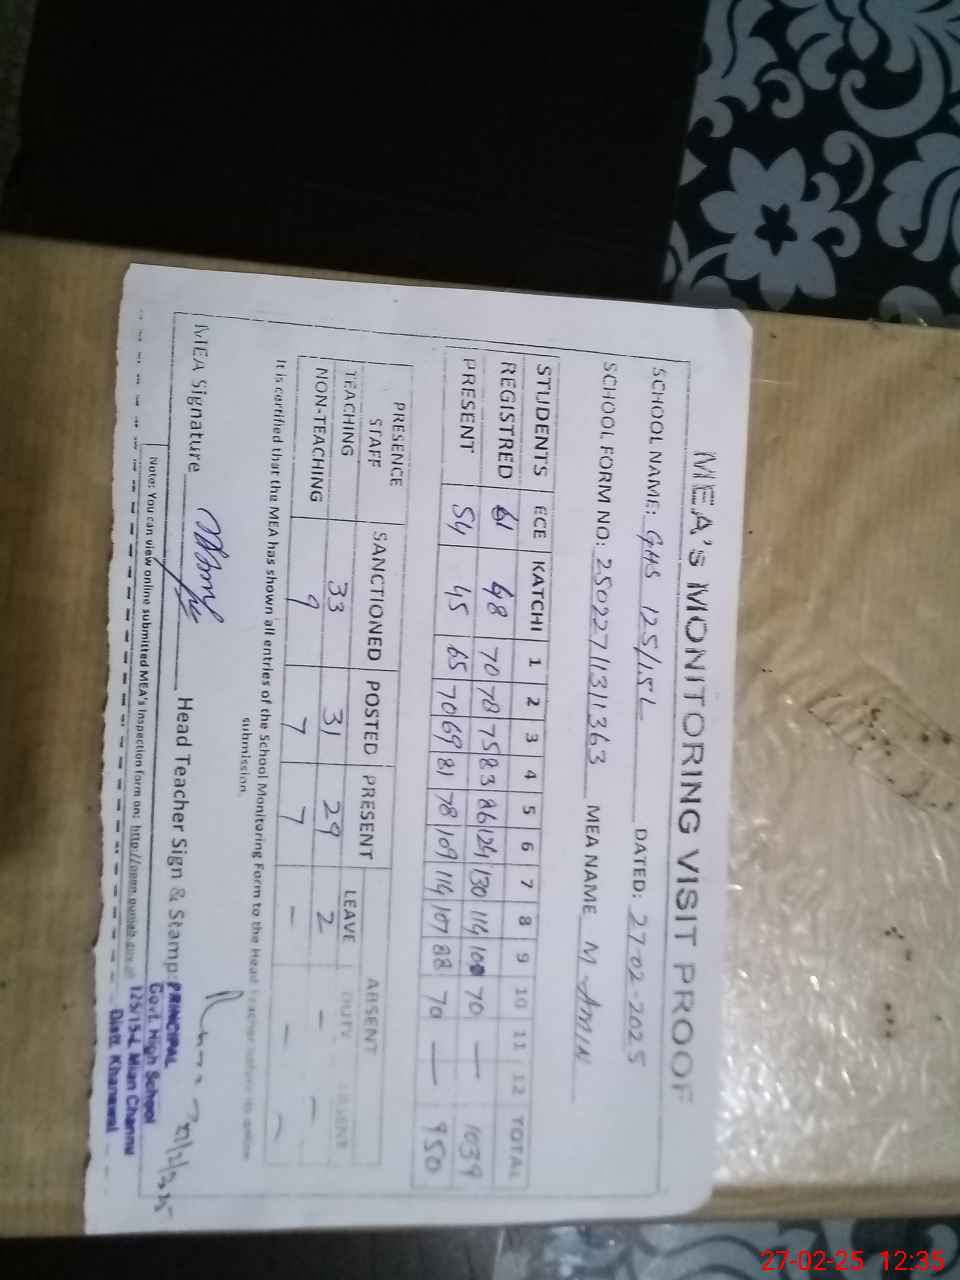 MEA's MONITORING VISIT PROOF
SCHOOL NAME: GHS 125/15L DATED: 27-02-2025
SCHOOL FORM NO: 250227113111363 MEA NAME M AMIN
STUDENTS ECE KATCHI 1 2 3 4 5 6 7 8 9 10 11 12 TOTAL
REGISTRED 61 48 70 78 75 83 86 124 130 114 100 70 — 1039
PRESENT 54 45 65 70 69 81 78 109 114 107 88 70 — 950
PRESENCE STAFF SANCTIONED POSTED PRESENT ABSENT
LEAVE DUTY ABSENT
TEACHING 33 31 29 2 - -
NON-TEACHING 9 7 7 - - -
It is certified that the MEA has shown all entries of the School Monitoring Form to the Head Teacher before its online
submission.
MEA Signature Head Teacher Sign & Stamp:
PRINCIPAL
Govt. High School
125/15-L Mian Channu
Distt. Khanewal
Note: You can view online submitted MEA's inspection form on: http://open.punjab.gov.pk
27-02-25 12:35